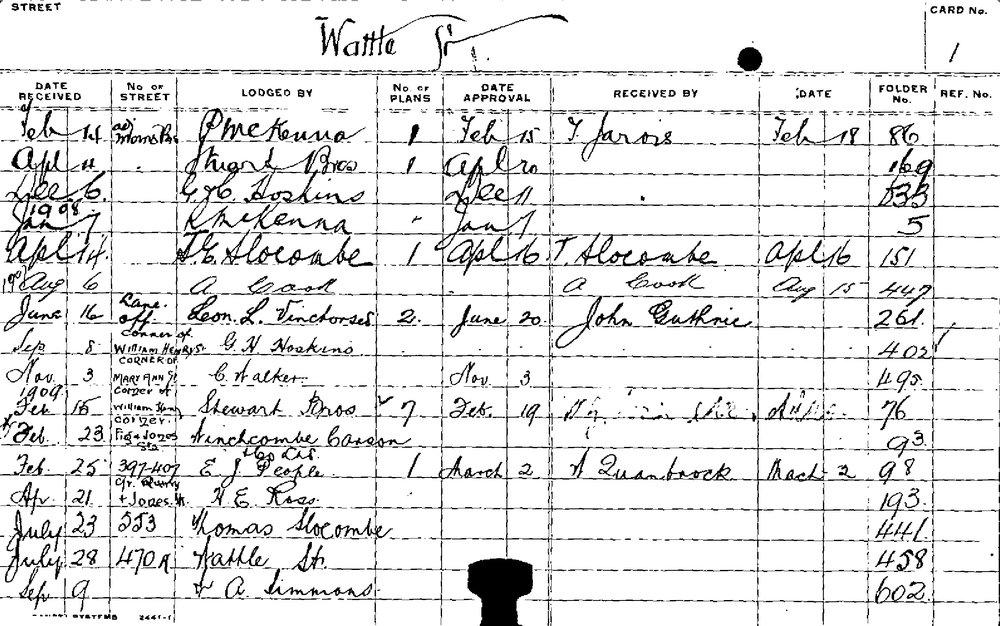 STREET
CARD No.
Wattle St.
1
DATE RECEIVED
No OF STREET
LODGED BY
No OF PLANS
DATE APPROVAL
RECEIVED BY
DATE
FOLDER No.
REF. No.
Feb 14 P McKenna 1 Feb 15 T. Jarvis Feb 18 86
Apl 11 Stuart Bros 1 Apl 20 169
Dec. 6. G. H. Hoskins Dec 11 533
1908
Jan 7 McKenna " Jan 7 5
Apl 14 T. E. Slocombe 1 Apl 16 T Slocombe Apl 16 151
Aug 6 A Cook A Cook Aug 15 447
June 16 Lane off. Leon. L. Vinchorses 2. June 20. John Guthrie 261
Sep 8. corner of WILLIAM HENRY St G. H Hoskins 402
Nov. 3 CORNER OF MARY ANN St C. Walker. Nov. 3 495
1909
Feb 15 corner of William Henry Stewart Bros 7 Feb. 19 76
Feb. 23 corner. Fig & Jones Sts Winchcombe Carson 93
& Co Ltd
Feb. 25 397-407 E J People 1 March 2 A Quanbrock Mach 2 98
Apr. 21 & Jones St. H. E. Ross. 193.
July 23 553 Thomas Slocombe 441
July 28 470A Wattle St. 458
Sep 9 A. Simmons. 602
2441-1